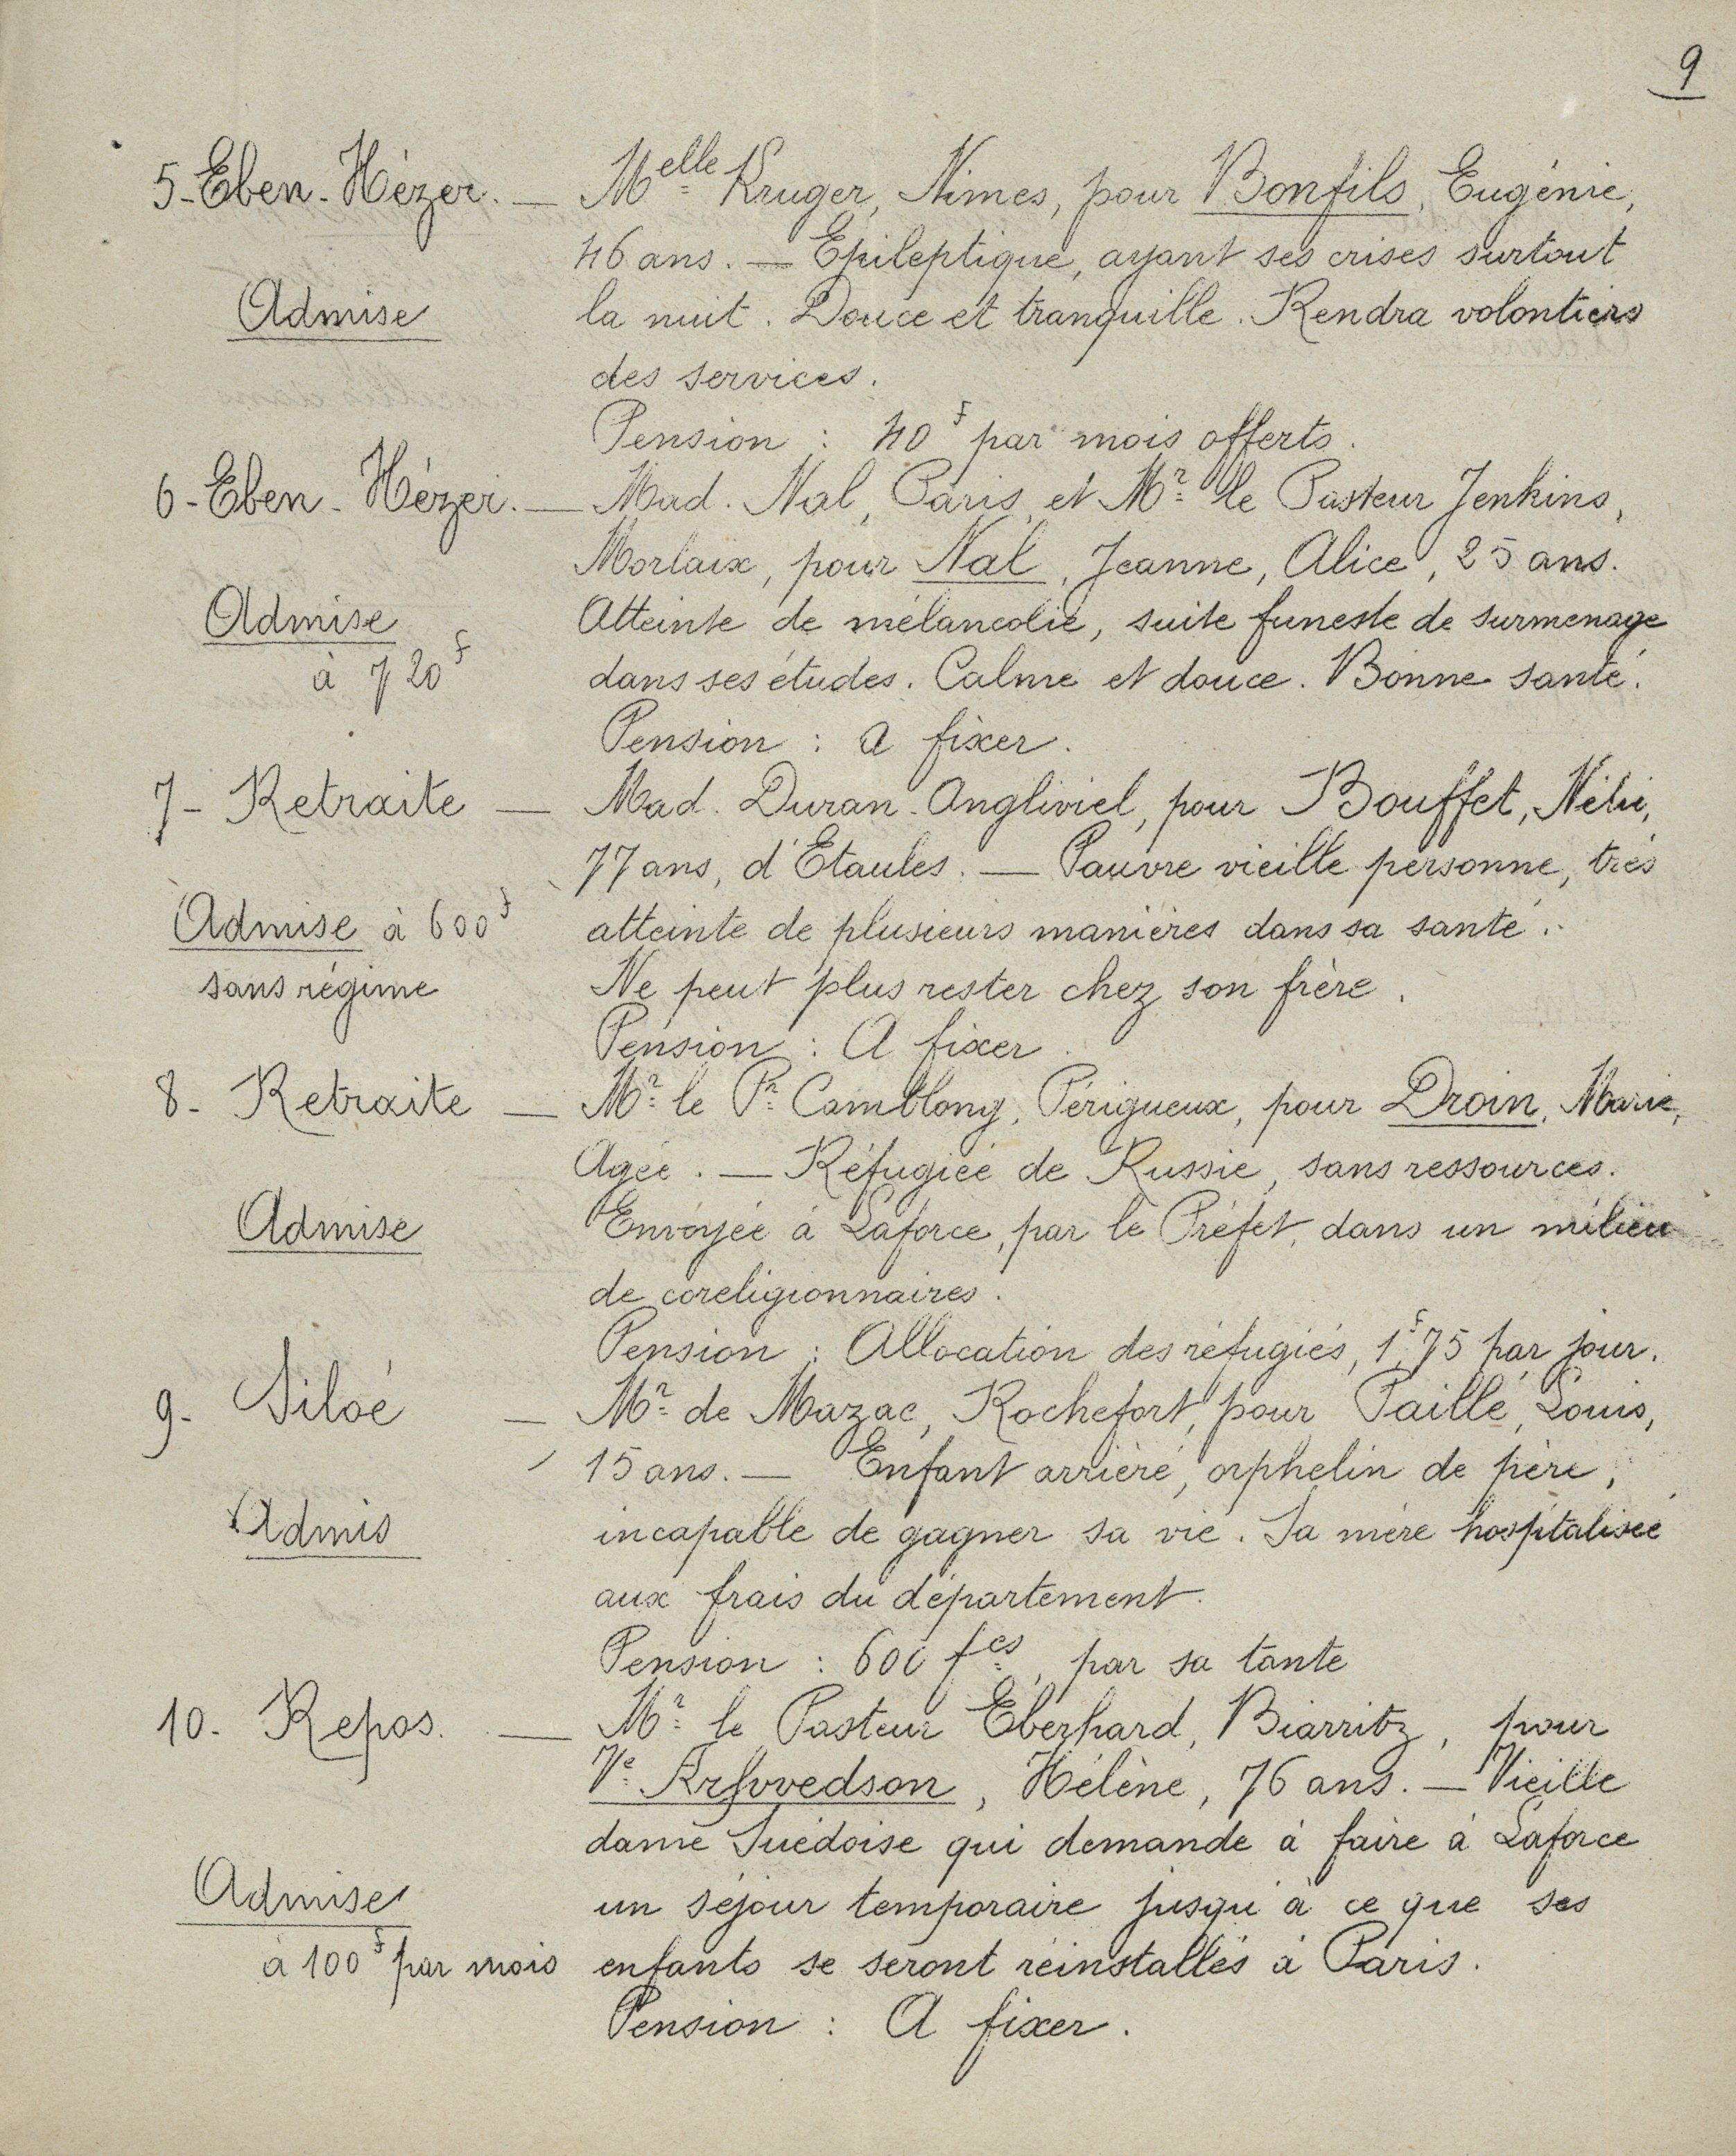 9
5-Eben-Hézer. — Melle Kruger, Nimes, pour Bonfils, Eugénie,
46 ans. — Epileptique, ayant ses crises surtout
Admise la nuit. Douce et tranquille. Rendra volontiers
des services.
Pension : 40f par mois offerts.
6-Eben-Hézer. — Mad. Nal, Paris, et Mr le Pasteur Jenkins,
Morlaix, pour Nal, Jeanne, Alice, 25 ans.
Admise Atteinte de mélancolie, suite funeste de surmenage
à 720f dans ses études. Calme et douce. Bonne santé.
Pension : A fixer.
7- Retraite — Mad. Duran-Angliviel, pour Bouffet, Nélie,
77 ans, d'Etaules. — Pauvre vieille personne, très
Admise à 600f atteinte de plusieurs manières dans sa santé.
sans régime Ne peut plus rester chez son frère.
Pension : A fixer.
8- Retraite — Mr le Pr Camblong, Périgueux, pour Droin, Marie,
Agée. — Réfugiée de Russie, sans ressources.
Admise Envoyée à Laforce, par le Préfet, dans un milieu
de coreligionnaires.
Pension : Allocation des réfugiés, 1f75 par jour.
9- Siloé — Mr de Mazac, Rochefort, pour Paillé, Louis,
15 ans. — Enfant arriéré, orphelin de père,
Admis incapable de gagner sa vie. Sa mère hospitalisée
aux frais du département.
Pension : 600 fcs, par sa tante
10- Repos. — Mr le Pasteur Eberhard, Biarritz, pour
Ve Arfvvedson, Hélène, 76 ans. — Vieille
dame Suédoise qui demande à faire à Laforce
Admise un séjour temporaire jusqu'à ce que ses
à 100f par mois enfants se seront réinstallés à Paris.
Pension : A fixer.